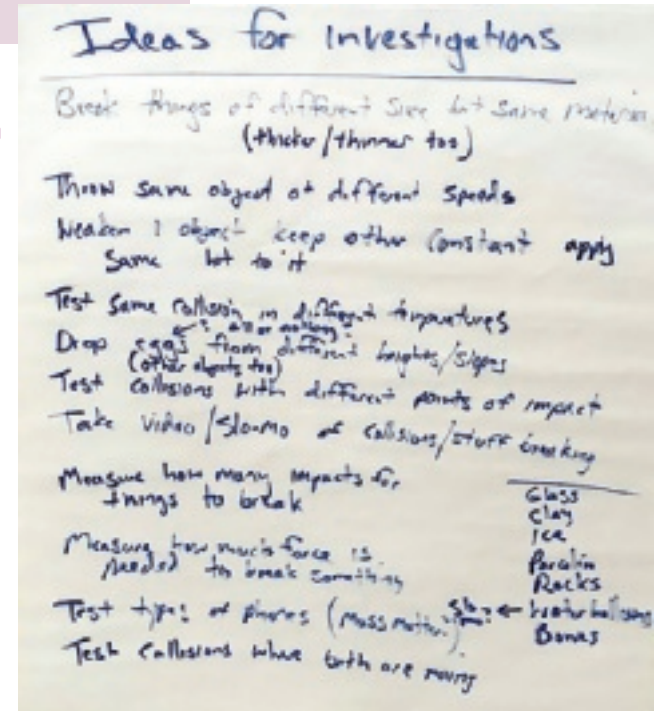 Ideas for investigations
Break things of different size but same material
(thicker/thinner too)
Throw same object at different speeds
Weaken 1 object keep other constant apply
same to it
Test same collision in different temperatures
Drop eggs from different heights/slopes
(other objects too)
Test collisions with different points of impact
Take video/slo-mo of collisions/stuff breaking
Measure how many impacts for
things to break
Measure how much force is
needed to break something
Test types of phones (mass matter?)
Test collisions where both are moving
Glass
Clay
Ice
Rocks
← water balloons
Bones